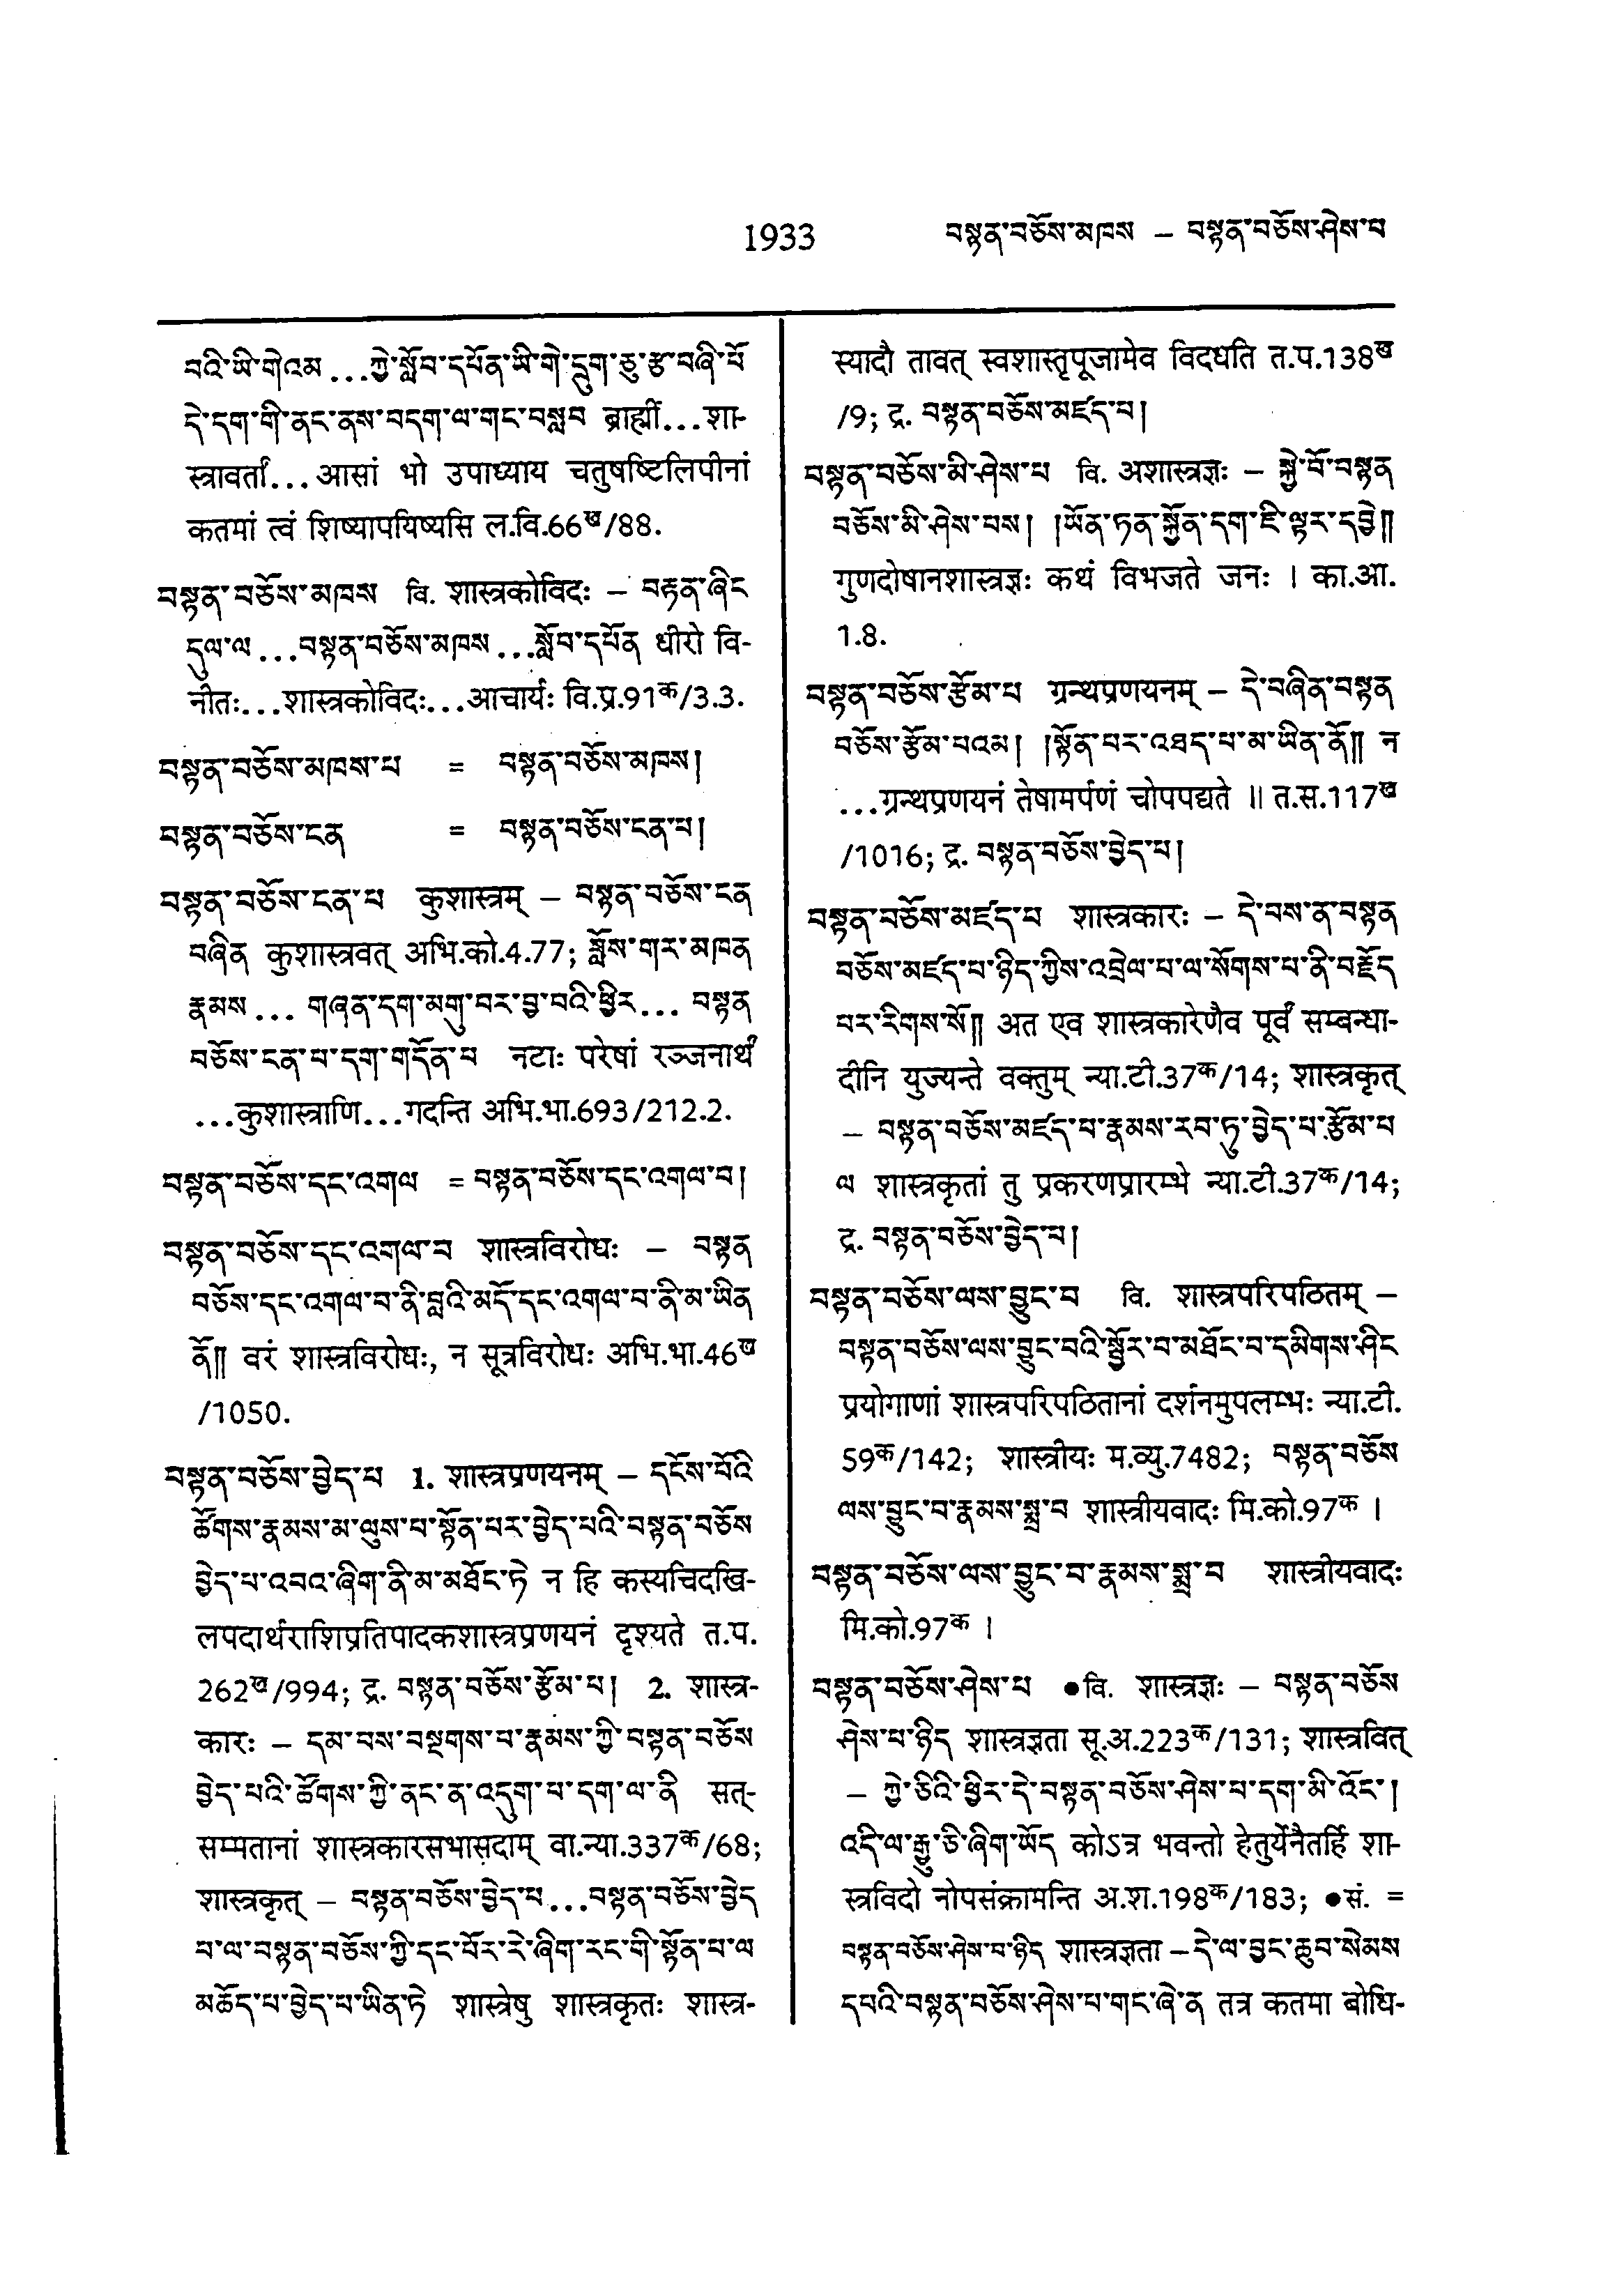 1933
བསྟན་བཅོས་མཁས – བསྟན་བཅོས་ཤེས་པ
བའི་ཡི་གེའམ...ཀྱེ་སློབ་དཔོན་ཡི་གེ་དྲུག་ཅུ་རྩ་བཞི་པོ
དེ་དག་གི་ནང་ནས་བདག་ལ་གང་བསླབ ब्राह्मीं...शा-
स्त्रावर्तां...आसां भो उपाध्याय चतुषष्टिलिपीनां
कतमां त्वं शिष्यापयिष्यसि ल.वि.66ख/88.
བསྟན་བཅོས་མཁས वि. शास्त्रकोविदः – བརྟན་ཞིང
དུལ་ལ...བསྟན་བཅོས་མཁས...སློབ་དཔོན धीरो वि-
नीतः...शास्त्रकोविदः...आचार्यः वि.प्र.91क/3.3.
བསྟན་བཅོས་མཁས་པ = བསྟན་བཅོས་མཁས།
བསྟན་བཅོས་ངན = བསྟན་བཅོས་ངན་པ།
བསྟན་བཅོས་ངན་པ कुशास्त्रम् – བསྟན་བཅོས་ངན
བཞིན कुशास्त्रवत् अभि.को.4.77; སློས་གར་མཁན
རྣམས... གཞན་དག་མགུ་བར་བྱ་བའི་ཕྱིར... བསྟན
བཅོས་ངན་པ་དག་གདོན་པ नटाः परेषां रञ्जनार्थं
...कुशास्त्राणि...गदन्ति अभि.भा.693/212.2.
བསྟན་བཅོས་དང་འགལ = བསྟན་བཅོས་དང་འགལ་བ།
བསྟན་བཅོས་དང་འགལ་བ शास्त्रविरोधः – བསྟན
བཅོས་དང་འགལ་བ་ནི་བླའི་མདོ་དང་འགལ་བ་ནི་མ་ཡིན
ནོ༎ वरं शास्त्रविरोधः, न सूत्रविरोधः अभि.भा.46ख
/1050.
བསྟན་བཅོས་བྱེད་པ 1. शास्त्रप्रणयनम् – དངོས་པོའི
ཚོགས་རྣམས་མ་ལུས་པ་སྟོན་པར་བྱེད་པའི་བསྟན་བཅོས
བྱེད་པ་འབའ་ཞིག་ནི་མ་མཐོང་ཏེ न हि कस्यचिदखि-
लपदार्थराशिप्रतिपादकशास्त्रप्रणयनं दृश्यते त.प.
262ख/994; द्र. བསྟན་བཅོས་རྩོམ་པ། 2. शास्त्र-
कारः – དམ་བས་བསྔགས་པ་རྣམས་ཀྱི་བསྟན་བཅོས
བྱེད་པའི་ཚོགས་ཀྱི་ནང་ན་འདུག་པ་དག་ལ་ནི सत्-
सम्मतानां शास्त्रकारसभासदाम् वा.न्या.337क/68;
शास्त्रकृत् – བསྟན་བཅོས་བྱེད་པ...བསྟན་བཅོས་བྱེད
པ་ལ་བསྟན་བཅོས་ཀྱི་དང་པོར་རེ་ཞིག་རང་གི་སྟོན་པ་ལ
མཆོད་པ་བྱེད་པ་ཡིན་ཏེ शास्त्रेषु शास्त्रकृतः शास्त्र-
स्यादौ तावत् स्वशास्तृपूजामेव विदधति त.प.138ख
/9; द्र. བསྟན་བཅོས་མཛད་པ།
བསྟན་བཅོས་མི་ཤེས་པ वि. अशास्त्रज्ञः – སྐྱེ་བོ་བསྟན
བཅོས་མི་ཤེས་པས། །ཡོན་ཏན་སྐྱོན་དག་ཇི་ལྟར་དབྱེ༎
गुणदोषानशास्त्रज्ञः कथं विभजते जनः । का.आ.
1.8.
བསྟན་བཅོས་རྩོམ་པ ग्रन्थप्रणयनम् – དེ་བཞིན་བསྟན
བཅོས་རྩོམ་པའམ། །སྟོན་པར་འཐད་པ་མ་ཡིན་ནོ༎ न
...ग्रन्थप्रणयनं तेषामर्पणं चोपपद्यते ॥ त.स.117ख
/1016; द्र. བསྟན་བཅོས་བྱེད་པ།
བསྟན་བཅོས་མཛད་པ शास्त्रकारः – དེ་བས་ན་བསྟན
བཅོས་མཛད་པ་ཉིད་ཀྱིས་འབྲེལ་པ་ལ་སོགས་པ་ནི་བརྗོད
པར་རིགས་སོ༎ अत एव शास्त्रकारेणैव पूर्वं सम्बन्धा-
दीनि युज्यन्ते वक्तुम् न्या.टी.37क/14; शास्त्रकृत्
– བསྟན་བཅོས་མཛད་པ་རྣམས་རབ་ཏུ་བྱེད་པ་རྩོམ་པ
ལ शास्त्रकृतां तु प्रकरणप्रारम्भे न्या.टी.37क/14;
द्र. བསྟན་བཅོས་བྱེད་པ།
བསྟན་བཅོས་ལས་བྱུང་བ वि. शास्त्रपरिपठितम् –
བསྟན་བཅོས་ལས་བྱུང་བའི་སྦྱོར་བ་མཐོང་བ་དམིགས་ཤིང
प्रयोगाणां शास्त्रपरिपठितानां दर्शनमुपलम्भः न्या.टी.
59क/142; शास्त्रीयः म.व्यु.7482; བསྟན་བཅོས
ལས་བྱུང་བ་རྣམས་སྨྲ་བ शास्त्रीयवादः मि.को.97क ।
བསྟན་བཅོས་ལས་བྱུང་བ་རྣམས་སྨྲ་བ शास्त्रीयवादः
मि.को.97क ।
བསྟན་བཅོས་ཤེས་པ ●वि. शास्त्रज्ञः – བསྟན་བཅོས
ཤེས་པ་ཉིད शास्त्रज्ञता सू.अ.223क/131; शास्त्रवित्
– ཀྱེ་ཅིའི་ཕྱིར་དེ་བསྟན་བཅོས་ཤེས་པ་དག་མི་འོང་།
འདི་ལ་རྒྱུ་ཅི་ཞིག་ཡོད कोऽत्र भवन्तो हेतुर्येनैतर्हि शा-
स्त्रविदो नोपसंक्रामन्ति अ.श.198क/183; ●सं. =
བསྟན་བཅོས་ཤེས་པ་ཉིད शास्त्रज्ञता – དེ་ལ་བྱང་ཆུབ་སེམས
དཔའི་བསྟན་བཅོས་ཤེས་པ་གང་ཞེ་ན तत्र कतमा बोधि-